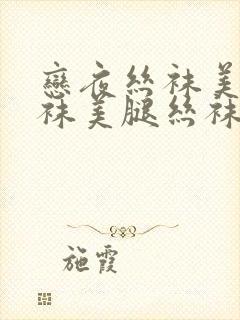 戀夜絲袜美
袜美腿丝袜
施霞